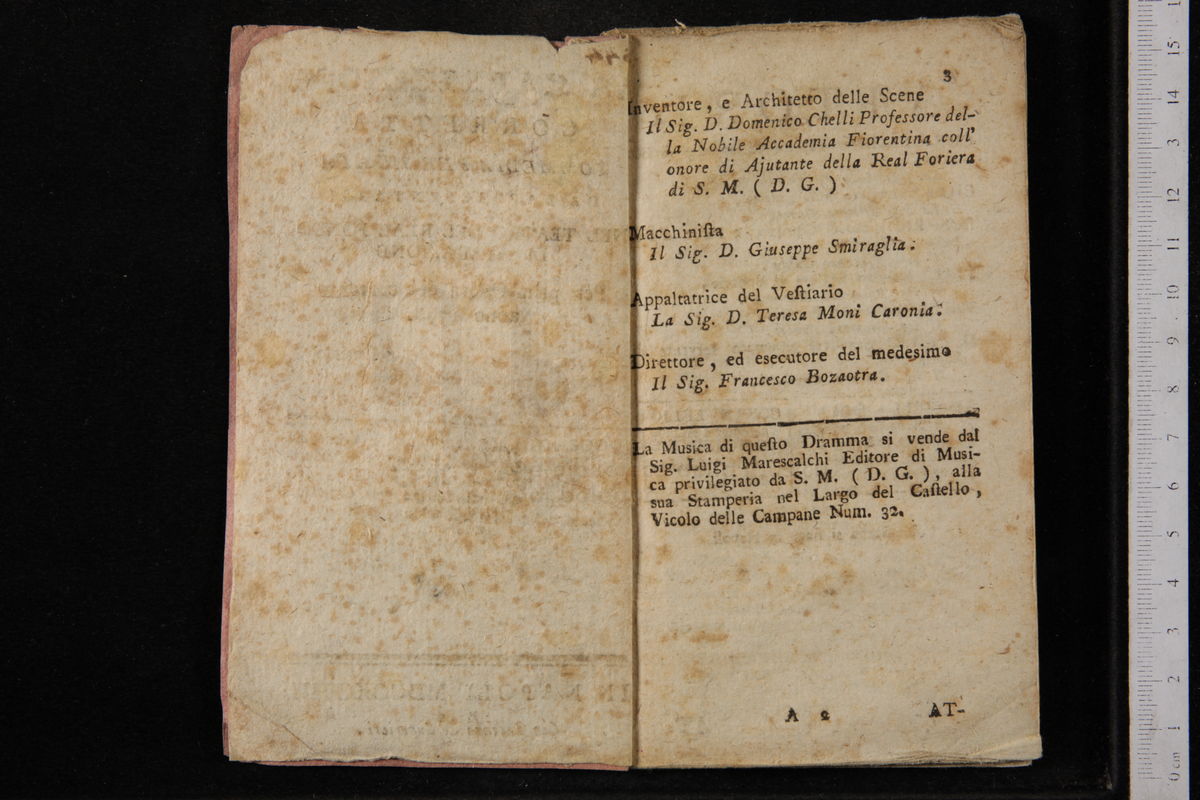 3
Inventore, e Architetto delle Scene
Il Sig. D. Domenico Chelli Professore del-
la Nobile Accademia Fiorentina coll'
onore di Ajutante della Real Foriera
di S. M. ( D. G. )
Macchiniſta
Il Sig. D. Giuseppe Smiraglia.
Appaltatrice del Veſtiario
La Sig. D. Teresa Moni Caronia.
Direttore, ed esecutore del medesimo
Il Sig. Francesco Bozaotra.
La Musica di queſto Dramma si vende dal
Sig. Luigi Marescalchi Editore di Musi-
ca privilegiato da S. M. ( D. G. ), alla
sua Stamperia nel Largo del Caſtello,
Vicolo delle Campane Num. 32.
A 2 AT-
15
14
3
12
11
10
9
8
7
6
5
4
3
2
1
0 cm